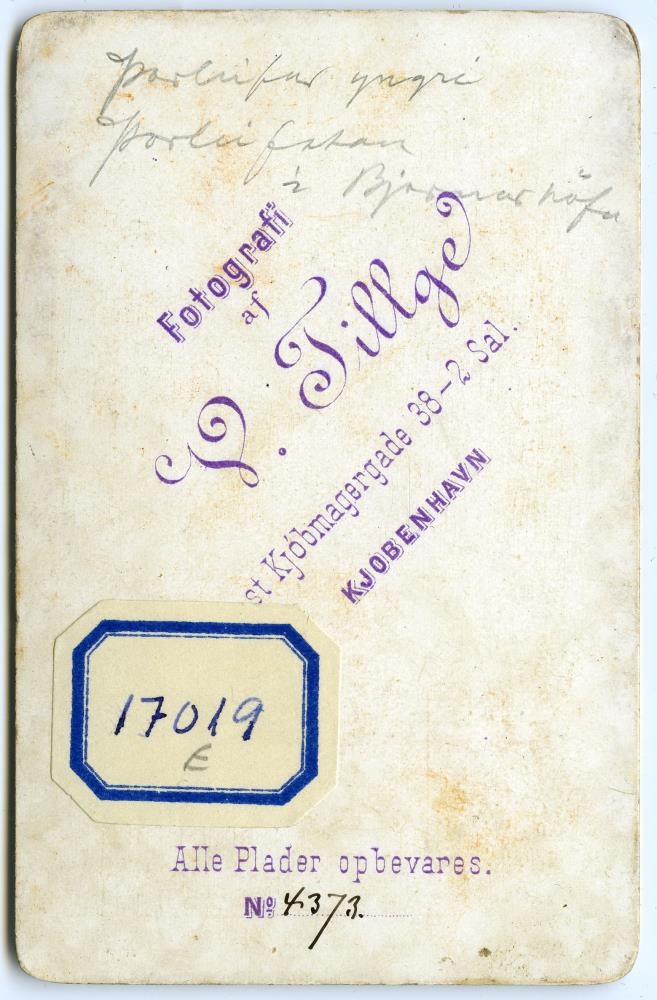 Þorleifur yngri
Þorleifsson
í Bjarnarhöfn
Fotografi
af
V. Tillge
st Kjöbmagergade 38-2 Sal.
KJOBENHAVN
17019
E
Alle Plader opbevares.
No 4373.